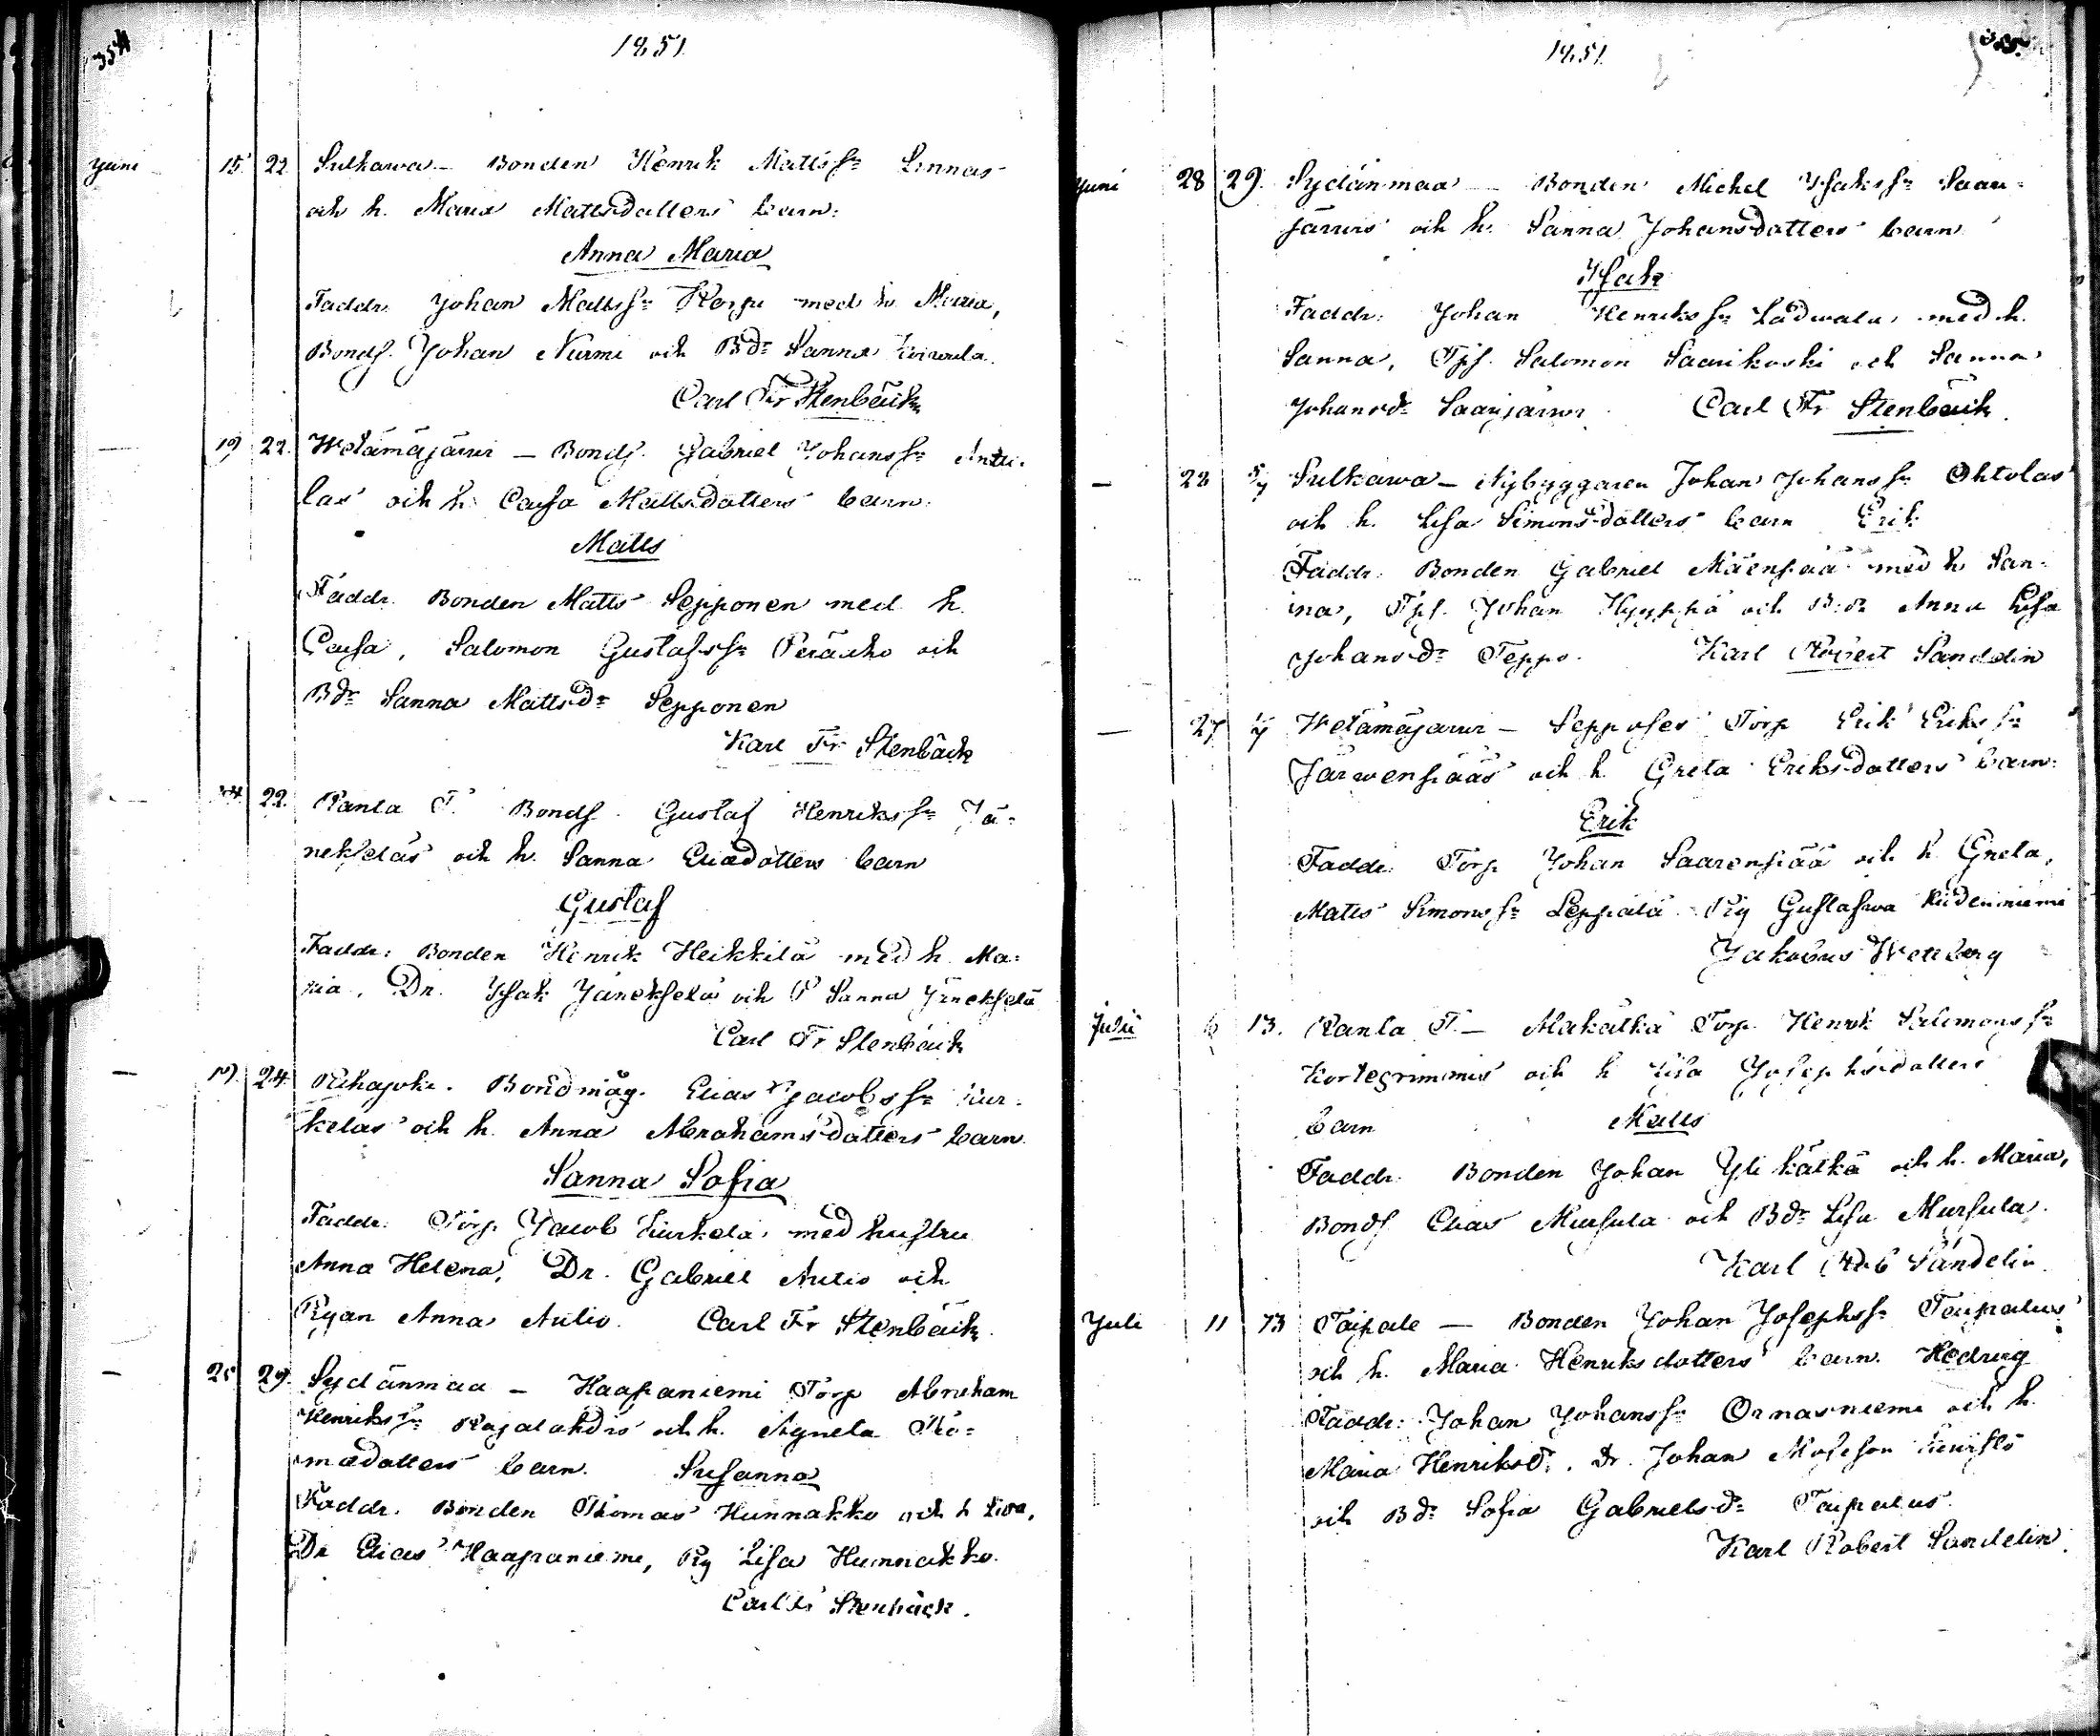 354
1851
Juni 15 22 Sulkawa - Bonden Henrik Mattss:n Linnas
och h. Maria Mattsdotters barn:
Anna Maria
Faddr. Johan Mattss:n Korpi med h. Maria,
Bonds. Johan Nurmi och Bd:r Sanna
Carl Fr Stenbäck
19 22. Wetämäjärwi - Bonds. Gabriel Johanss:n Antti-
las och h. Caisa Mattsdotters barn:
Matts
Faddr. Bonden Matts Sepponen med h.
Caisa, Salomon Gustafss:n Peräaho och
Bd:r Sanna Mattsd:r Sepponen
Karl Fr Stenbäck
22. Ranta T. Bonds. Gustaf Henrikss:n Jä-
nekselas och h. Sanna Eliædotters barn
Gustaf
Faddr: Bonden Henrik Heikkilä med h. Ma-
ria, Dr. Isak Jänekselä och P Sanna Jänekselä
Carl Fr Stenbäck
— 17 24. Rihajoki. Bondmåg. Elias Jacobss:n Kur-
kelas och h. Anna Abrahamsdotters barn.
Sanna Sofia
Faddr: Torp. Jacob Kurkela, med hustru
Anna Helena, Dr. Gabriel Autio och
Pigan Anna Autio. Carl Fr Stenbäck.
— 25 29. Sydänmaa - Haapaniemi Torp Abraham
Henrikss:n Rajalahdis och h. Agneta Tho-
mædotters barn. Susanna
Faddr. Bonden Thomas Hunnakko och h Lisa,
Dr Elias Haapaniemi, Pig Lisa Hunnakko.
Carl Fr Stenbäck.
1851.
Juni 28 29. Sydänmaa - Bonden Michel Isakss:n Saari-
järwis och h. Sanna Johansdotters barn
Isak
Faddr: Johan Henrikss:n Ladwala med h.
Sanna, Tps. Salomon Saarikoski och Sanna
Johansd:r Saarijärwi Carl Fr Stenbäck.
— 28 5/7 Sulkawa - Nybyggaren Johan Johanss:n Ohtolas
och h. Lisa Simonsdotters barn Erik
Faddr: Bonden Gabriel Mäenpää med h San-
na, Tps. Johan Hyyppä och B:dr Anna Lisa
Johansd:r Teppo. Karl Robert Sandelin
— 27 Wetämäjärwi - Sepposes Torp Erik Erikss:n
Järwenpääs och h. Greta Eriksdotters barn:
Erik
Faddr: Torp Johan Saarenpää och h. Greta,
Matts Simonss:n Leppälä Pig Gustafwa
Jakobus Wettberg
Julii 6 13. Ranta T. - Alakätkä Torp. Henrik Salomonss:n
Kortegrimmis och h Lisa Josephsdotters
barn Matts
Faddr. Bonden Johan Yli kätkä och h. Maria,
Bonds Elias Mursula och Bd:r Lisa Mursula.
Karl Rob Sandelin.
Juli 11 13 Taipale - Bonden Johan Josephss:n Taipalus
och h. Maria Henriksdotters barn. Hedwig
Faddr: Johan Johanss:n Ornasniemi och h.
Maria Henriksd:r, Dr. Johan Moseson
och Bd:r Sofia Gabrielsd:r Taipalus.
Karl Robert Sandelin.